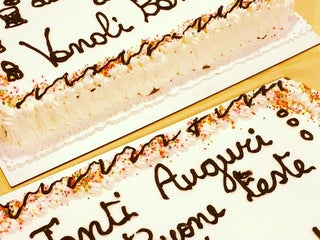 Vanoli Bas
Tanti Auguri
Buone Feste